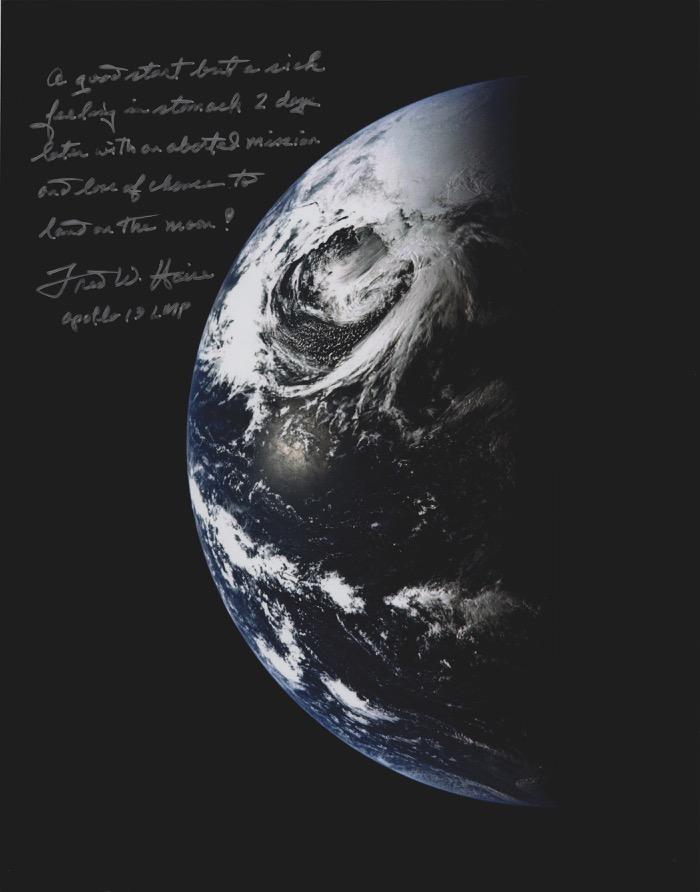 A good start but a sick
feeling in stomach 2 days
later with an aborted mission
and loss of chance to
land on the moon!
Fred W. Haise
Apollo 13 LMP